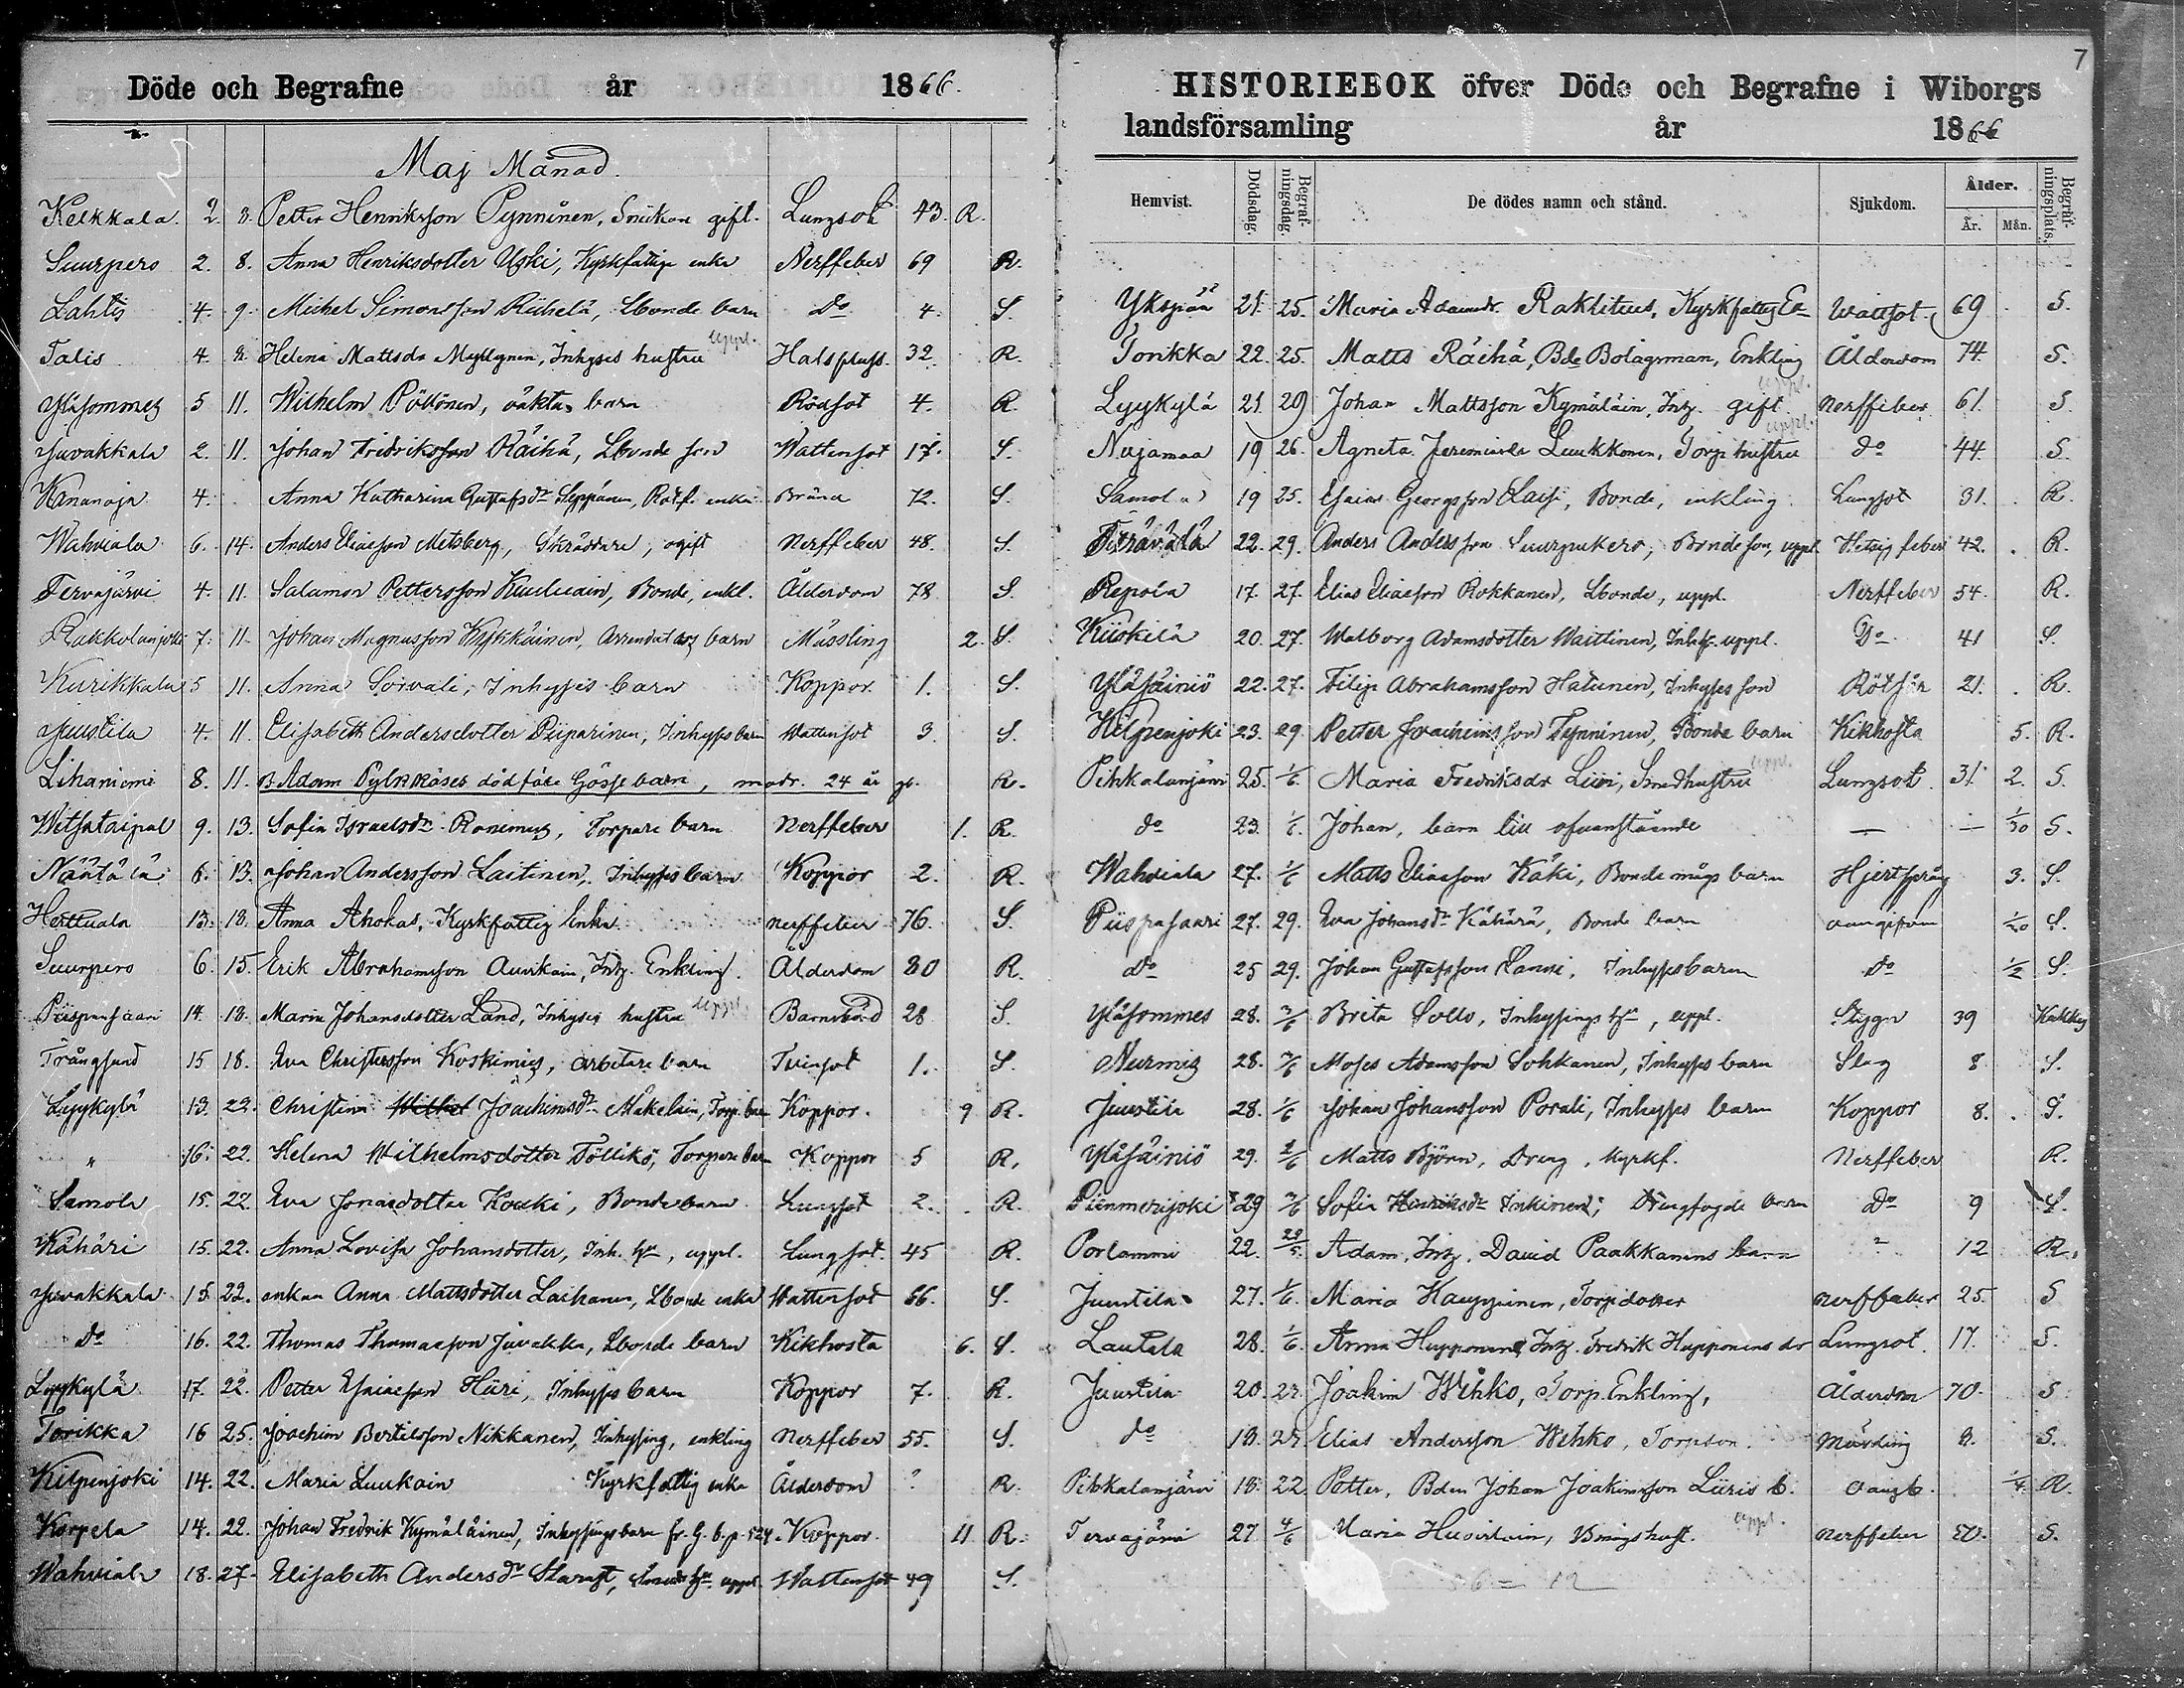 Döde och Begrafne år 1866.
Maj Månad.
Kelkkala 2. 8. Petter Henriksson Pynnönen, Snickare gift. Lungsot 43. R.
Suurpero 2. 8. Anna Henriksdotter Uski, Kyrkfattige enka Nerffeber 69 R.
Lahtis 4. 9. Michel Simonsson Riihelä, Lbonde barn do 4. S.
Talis 4. 8. Helena Mattsdr Myllynen, Inhyses hustru uppl. Halsfluss. 32 R.
Yläsommes 5 11. Wilhelm Pöllönen, barn Rödsot 4. R.
Juvakkala 2. 11. Johan Fredriksson Räihä, Lbonde son Wattensot 17. S.
4. Anna Katharina Gustafsdr Seppänen, Rotf. enka Bråna 72. S.
Wahviala 6. 14. Anders Eliasson Metsberg, Skräddare, ogift Nerffeber 48. S.
Tervajärvi 4. 11. Salamon Pettersson Bonde, enkl. Ålderdom 78 S.
7. 11. Johan Magnusson Kykkäinen, barn Mässling 2. S.
Kurikkala 5 11. Anna Sorvali, Inhyses barn Koppor 1. S.
Juustila 4. 11. Elisabeth Andersdotter Piiparinen, Inhyses barn Wattensot 3. S.
Lihaniemi 8. 11. B. Adam dödföde Gosse barn, modr. 24 år gl. R.
Witsataipal 9. 13. Sofia Israelsdr Ronimus, Torpare barn Nerffeber 1. R.
Näätälä 6. 13. Johan Andersson Laitinen, Inhyses barn Koppor 2. R.
Herttuala 13. 18. Anna Ahokas, Kyrkfattig Enka Nerffeber 76. S.
Suurpero 6. 15. Erik Abrahamsson Auvikain, Inhy. Enkling. Ålderdom 80 R.
Piispansaari 14. 18. Maria Johansdotter Land, Inhyses hustru uppl. Barnsbörd 28 S.
Trångsund 15 18. Eva Christersson Koskimies, arbetare barn Tvinsot 1. S.
Lyykylä 13. 22. Christina Joachimsdr Mäkeläin, Torp. barn Koppor. 9 R.
" 16. 22. Helena Wilhelmsdotter Töllikö, Torpare barn Koppor 5 R.
Samola 15. 22. Eva Jonasdotter Kouki, Bonde barn Lungsot 2. R.
Kähäri 15. 22. Anna Lovisa Johansdotter, Inh. hu, uppl. Lungsot. 45 R.
Juvakkala 15. 22. enkan Anna Mattsdotter Laihanen, Lbonde enka Wattensot 66. S.
do 16. 22. Thomas Thomasson Juvakka, Lbonde barn Kikhosta 6. S.
Lyykylä 17. 22. Petter Esaiasson Hiiri, Inhyses barn Koppor 7. R.
Torikka 16 25. Joachim Bertilsson Nikkanen, Inhysing, enkling Nerffeber 55. S.
Kilpenjoki 14. 22. Maria Luukain Kyrkfattig enka Ålderdom ? R.
Korpela 14. 22. Johan Fredrik Kymäläinen, Inhysings barn fr. G. b. p. 524. Koppor. 11 R.
Wahviala 18. 27. Elisabeth Andersdr Starast, uppl. Wattensot 49 S.
7
HISTORIEBOK öfver Döde och Begrafne i Wiborgs
landsförsamling år 1866
Hemvist. Dödsdag. Begrafningsdag. De dödes namn och stånd. Sjukdom. Ålder. År. Mån. Begrafningsplats.
Ykspää 21. 25. Maria Adamsdr. Kyrkfattig Wattsot 69 S.
Torikka 22. 25. Matts Räihä, Bde Bolagsman, Enkling Ålderdom 74. S.
Lyykylä 21. 29 Johan Mattsson Kymäläin, Inhy. gift uppl. Nerffeber 61. S
Nuijamaa 19 26. Agneta Jeremiasdr Luukkonen, Torp. hustru uppl. do 44. S.
Samola 19 25. Esaias Georgsson Laisi, Bonde, enkling Lungsot 31. R.
22. 29. Anders Andersson Suurpukero, Bonde son, uppl. Hetsig feber 42. R.
Repola 17. 27. Elias Eliasson Rokkanen, Lbonde, uppl. Nerffeber 54. R.
Kiiskilä 20. 27. Walborg Adamsdotter Waittinen, Inhys. uppl. Do 41 S.
Yläsäiniö 22. 27. Filip Abrahamsson Hatunen, Inhyses son 21. R.
Kilpenjoki 23. 29 Petter Joachimsson Tynninen, Bonde barn Kikhosta 5. R.
Pihkalanjärvi 25. 1/6 Maria Fredriksdr Liiri, Smedhustru uppl. Lungsot 31. 2. S.
do 23. 1/6. Johan, barn till ofvanstående — — 1/30 S.
Wahviala 27. 1/6 Matts Eliasson Käki, Bonde mågs barn Hjertspräng 3. S.
Piispansaari 27. 29. Eva Johansdr Kähärä, Bonde barn oangifven 1/20 S.
do 25 29. Johan Gustafsson Lanni, Inhyses barn do 1/2 S.
Yläsommes 28. 3/6 Brita Sollo, Inhysings hu, uppl. Stygn 39
Nurmis 28. 3/6 Moses Adamsson Sohkanen, Inhyses barn Slag 8 S.
Juustila 28. 1/6 Johan Johansson Porali, Inhyses barn Koppor 8. S.
Yläsäiniö 29. 2/6 Matts Björn, Dreng, kyrkf. Nerffeber R.
Piienmerijoki 29 3/6 Sofia Henriksdr Inkinen, Drengfogde barn Do 9 S.
Porlammi 22. 29/5. Adam, Inhy. David Paakkanens barn " 12 R.
Juustila 27. 1/6. Maria Kauppinen, Torp.dotter Nerffeber 25. S
Lautala 28. 1/6. Anna Hupponen, Inhy. Fredrik Hupponens dr Lungsot. 17. S.
Juustila 20. 27. Joakim Wihko, Torp. Enkling, Ålderdom 70. S
do 18. 27. Elias Andersson Wihko, Torpson. Mässling 8. S.
Pihkalanjärvi 18. 22. Petter, Bden Johan Joakimsson Liiris b. oangb. 1/4 R.
Tervajärvi 27. 4/6 Maria Huovilain, uppl. Nerffeber 50. S.